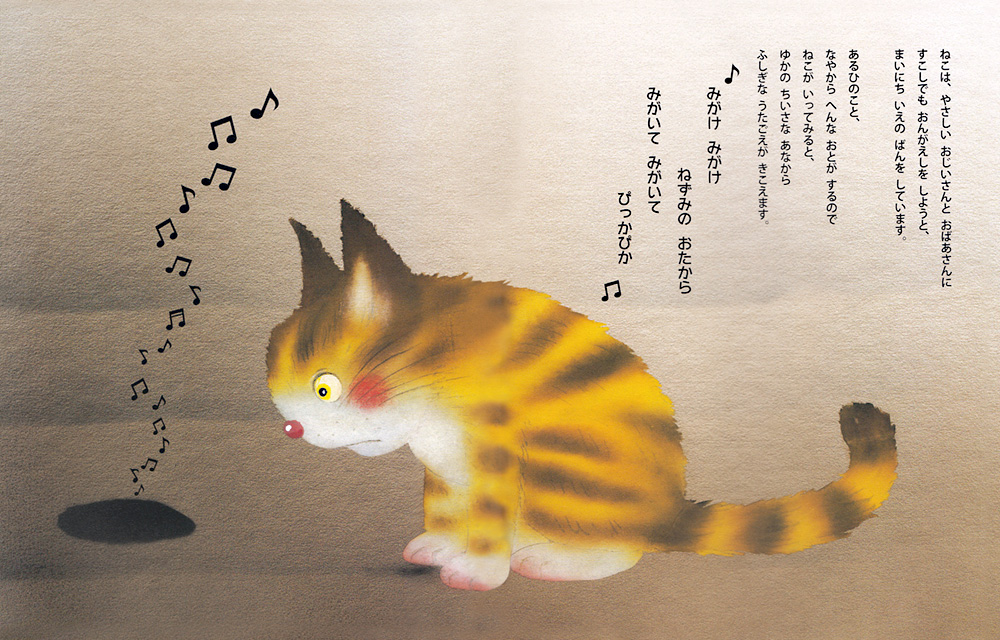 ねこは、やさしい おじいさんと おばあさんに
すこしでも おんがえしを しようと、
まいにち いえの ばんを しています。
あるひのこと、
なやから へんな おとが するので
ねこが いってみると、
ゆかの ちいさな あなから
ふしぎな うたごえが きこえます。
♪みがけ みがけ
ねずみの おたから
みがいて みがいて
ぴっかぴか♫